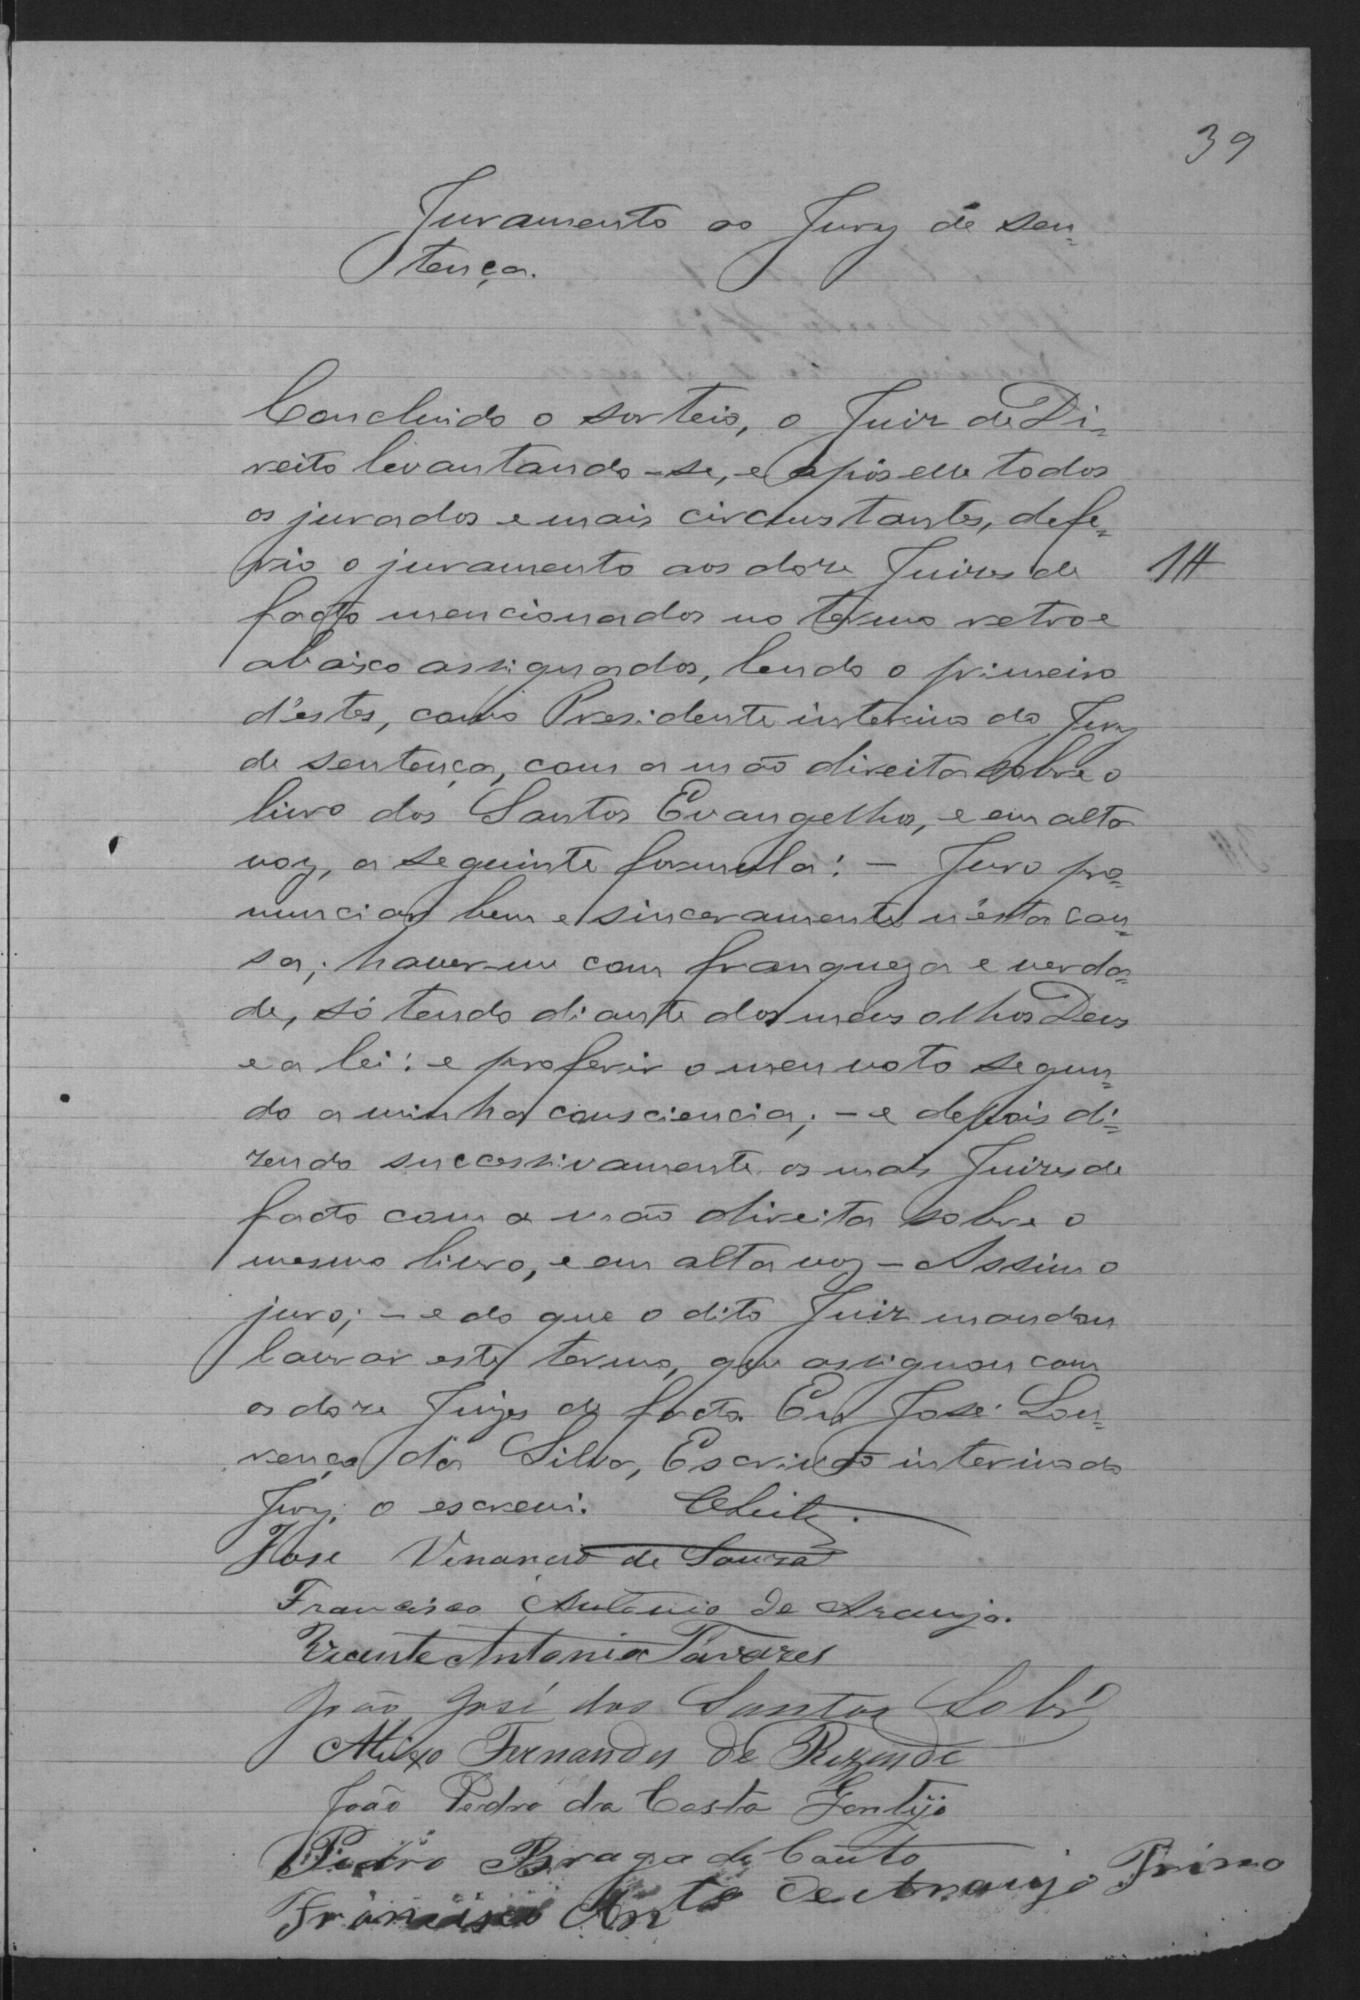 39
Juramento ao Jury de sen=
tença.
Concluido o sorteio, o Juiz de Di=
reito levantando-se, e após elle todos
os jurados e mais circunstantes, defe=
rio o juramento aos doze Juizes de
facto mencionados no termo retro e
abaixo assignados, lendo o primeiro
d'estes, como Presidente interino do Jury
de sentença, com a mão direita sobre o
livro dos Santos Evangelhos, e em alta
voz, a seguinte formula: — Juro pro=
nunciar bem e sinceramente n'esta cau=
sa; haver-me com franqueza e verda=
de, só tendo diante dos meus olhos Deus
e a lei: e proferir o meu voto segun=
do a minha consciencia; — e depois di=
zendo successivamente os mais Juizes de
facto com a mão direita sobre o
mesmo livro, e em alta voz — Assim o
juro; — e do que o dito Juiz mandou
lavrar este termo, que assignou com
os doze Juizes de facto. Eu José Lou=
renço da Silva, Escrivão interino do
Jury, o escrevi.
José Venancio de Souza
Francisco Antonio de Araujo.
Vicente Antonio Tavares
João José dos Santos Sobr.º
Aleixo Fernandes de Rezende
João Pedro da Costa Gontijo
Pedro Braga do Couto
Francisco Ant.º de Araujo Primo